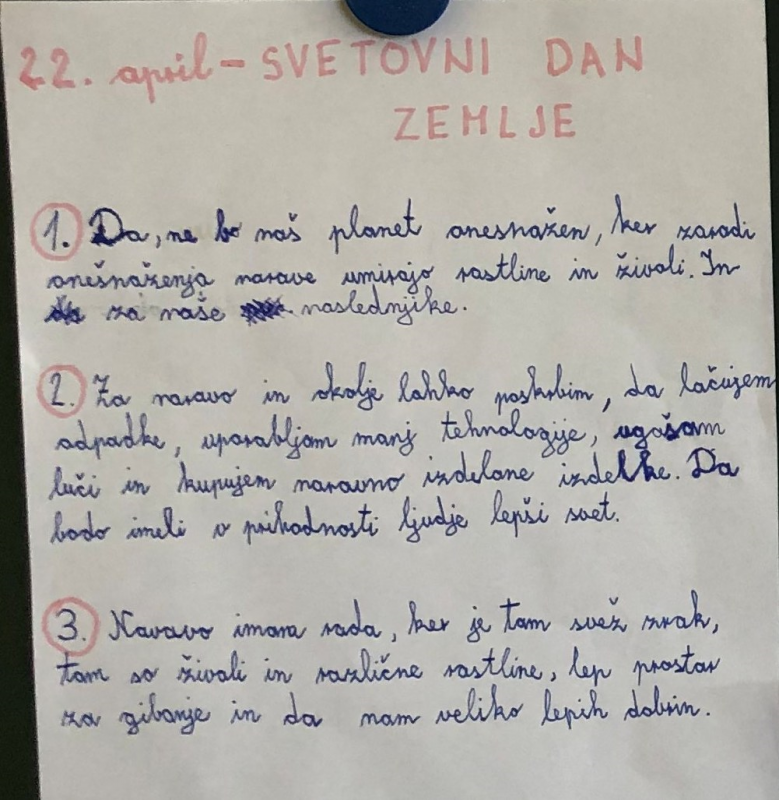 22. april - SVETOVNI DAN
ZEMLJE
1. Da, ne bo naš planet onesnažen, ker zaradi
onešnaženja narave umirajo rastline in živali. In
za naše naslednjike.
2. Za naravo in okolje lahko poskrbim, da ločujem
odpadke, uporabljam manj tehnologije, ugašam
luči in kupujem naravno izdelane izdelke. Da
bodo imeli v prihodnosti ljudje lepši svet.
3. Naravo imam rada, ker je tam svež zrak,
tam so živali in različne rastline, lep prostor
za gibanje in da nam veliko lepih dobrin.